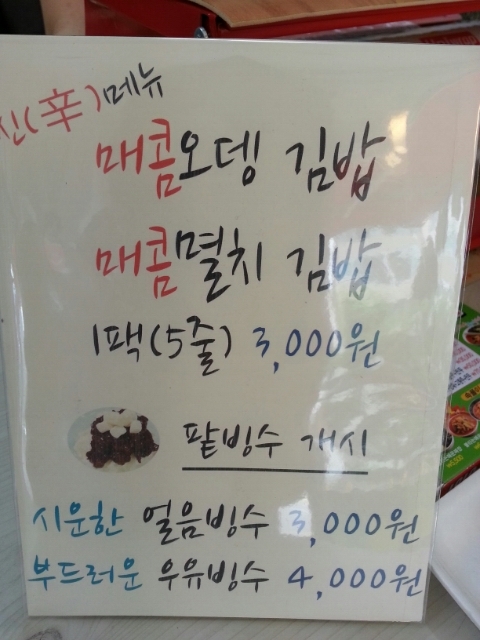 신(辛)메뉴
매콤오뎅 김밥
매콤멸치 김밥
1팩(5줄) 3,000원
팥빙수 개시
시운한 얼음빙수 3,000원
부드러운 우유빙수 4,000원